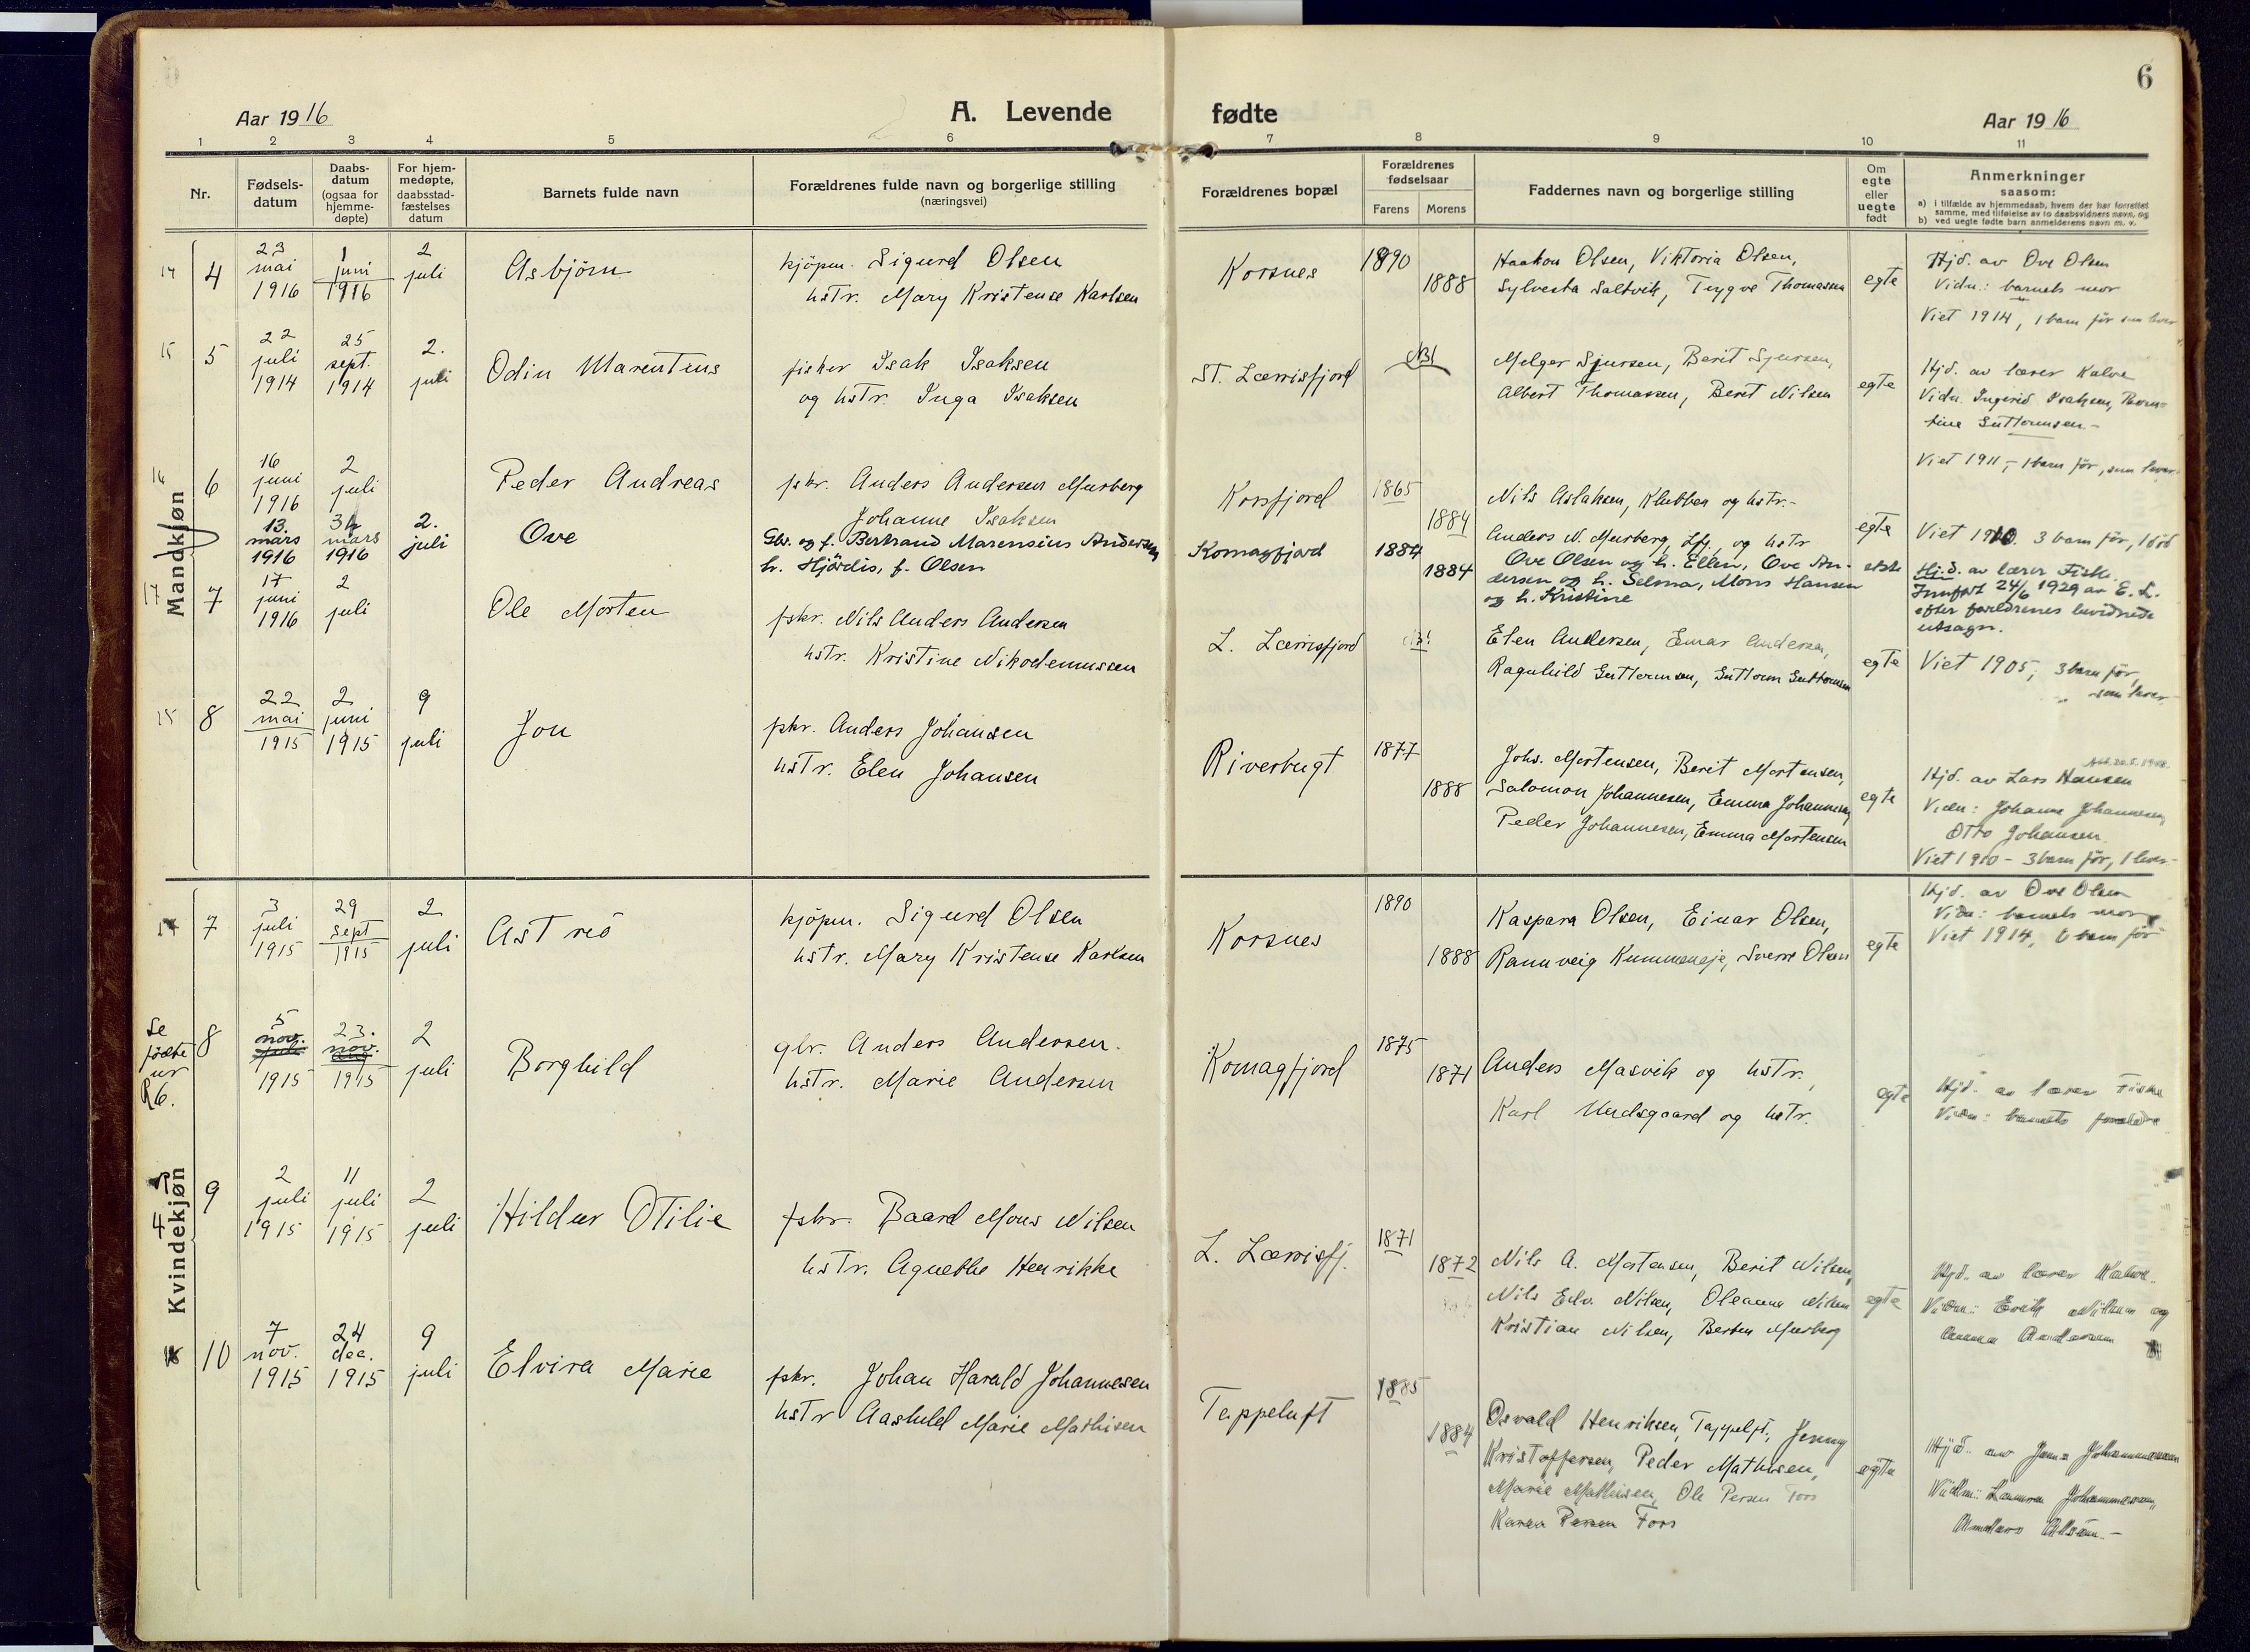 6
Aar 1916
A. Levende fødte
Aar 1916
1 2 3 4 5 6 7 8 9 10 11
Nr.
Fødsels-
datum
Daabs-
datum
(ogsaa for
hjemme-
døpte)
For hjem-
medøpte,
daabsstad-
fæstelses
datum
Barnets fulde navn
Forældrenes fulde navn og borgerlige stilling
(næringsvei)
Forældrenes bopæl
Forældrenes
fødselsaar
Farens Morens
Faddernes navn og borgerlige stilling
Om
egte
eller
uegte
født
Anmerkninger
saasom:
a) i tilfælde av hjemmedaab, hvem der har forrettet
samme, med tilføielse av to daabsvidners navn, og
b) ved uegte fødte barn anmelderens navn m. v.
Mandkjøn
14 4
23 mai 1916
1 juni 1916
2 juli
Asbjörn
kjöpm. Sigurd Olsen
hstr. Mary Kristense Karlsen
Korsnes
1890
1888
Haakon Olsen, Viktoria Olsen,
Sylvesta Saltvik, Trygve Thomassen
egte
Hjd. av Ove Olsen
Vidn.: barnets mor
Viet 1914, 1 barn för som lever
15 5
22 juli 1914
25 sept. 1914
2. juli
Odin Marentius
fisker Isak Isaksen
og hstr. Inga Isaksen
St. Lerrisfjord
NB!
Melger Sjursen, Berit Sjursen,
Albert Thomassen, Beret Nilsen
egte
Hjd. av lærer Kalve
Vidn. Ingerid Isaksen, Born-
tine Guttormsen-
Viet 1911, - 1 barn för, som lever-
16 6
16 juni 1916
2 juli
Peder Andreas
fskr. Anders Andersen Murberg
Johanne Isaksen
Korsfjord
1865
1884
Nils Aslaksen, Klubben og hstr.-
Anders N. Murberg, Lfj, og hstr
egte
Viet 1910. 3 barn för, 1 död
13. mars 1916
mars 1916
2. juli
Ove
Gbr. og f. Bertrand Marensius Andersen
h. Hjördis, f. Olsen
Komagfjord
1884
1884
Ove Olsen og h. Ellen, Ove An-
dersen og h. Selma, Mons Hansen
og h. Kristine
ekte
Hj.d. av lærer Fiske
Innført 24/6 1929 av E. L.
efter foreldrenes bevidnede
utsagn.
17 7
17 juni 1916
2 juli
Ole Morten
fskr. Nils Anders Andersen
hstr. Kristine Nikodemussen
L. Lerrisfjord
NB!
Elen Andersen, Einar Andersen,
Ragnhild Guttormsen, Guttorm Guttormsen
egte
Viet 1905; 3 barn för,
som lever
15 8
22 mai 1915
2 juni 1915
9 juli
Jon
fskr. Anders Johansen
hstr. Elen Johansen
Riverbugt
1877
1888
Johs. Mortensen, Berit Mortensen,
Salomon Johannesen, Emma Johannesen
Peder Johannesen, Emma Mortensen
egte
Hjd. av Lars Hansen
Vidn: Johanne Johannesen,
Otto Johansen
Viet 1910 - 3 barn för, 1 lever-
Kvindekjøn
7
3 juli 1915
29 sept 1915
2 juli
Astrid
kjöpm. Sigurd Olsen
hstr. Mary Kristense Karlsen
Korsnes
1890
1888
Kaspara Olsen, Einar Olsen,
Rannveig Kummeneje, Sverre Olsen
egte
Hjd. av Ove Olsen
Vidn: barnets mor
Viet 1914, 0 barn för
Se
födte
nr
R6.
8
5 nov. 1915
23. nov. 1915
2 juli
Borghild
gbr. Anders Andersen.
hstr. Marie Andersen
Komagfjord
1875
1871
Anders Masvik og hstr.,
Karl Undsgaard og hstr.
egte
Hjd. av lærer Fiske
Vidn: barnets forældre
4 9
2 juli 1915
11 juli 1915
2 juli
Hildur Otilie
fskr. Baard Mons Nilsen
hstr. Agnethe Henrikke
L. Lerrisfj.
1871
1872
Nils A. Mortensen, Berit Nilsen,
Nils Edv. Nilsen, Oleanna Nilsen
Kristian Nilsen, Berben Murberg
egte
Hjd. av lærer Kalve.
Vidn: Erik Nilsen og
Anna Andersen
10
7 nov. 1915
24 dec. 1915
9 juli
Elvira Marie
fskr. Johan Harald Johannesen
hstr Aashild Marie Mathisen
Tappeluft
1885
1884
Osvald Henriksen, Tappelft., Jenny
Kristoffersen, Peder Mathisen,
Marie Mathisen, Ole Persen Fors
Karen Persen Fors
egte
Hjd. av Jens Johannesen
Vidn: Johannesen,
Anders Olsen.-